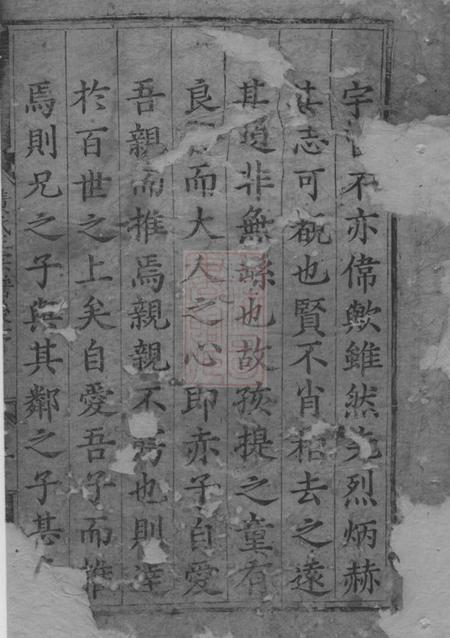 宇不亦偉歟雖然先烈炳赫
志可觀也賢不肖相去之遠
其道非無繇也故孩提之童有
良而大人之心即赤子自愛
吾親而推焉親親不窮也則達
於百世之上矣自愛吾子而推
焉則兄之子與其鄰之子甚